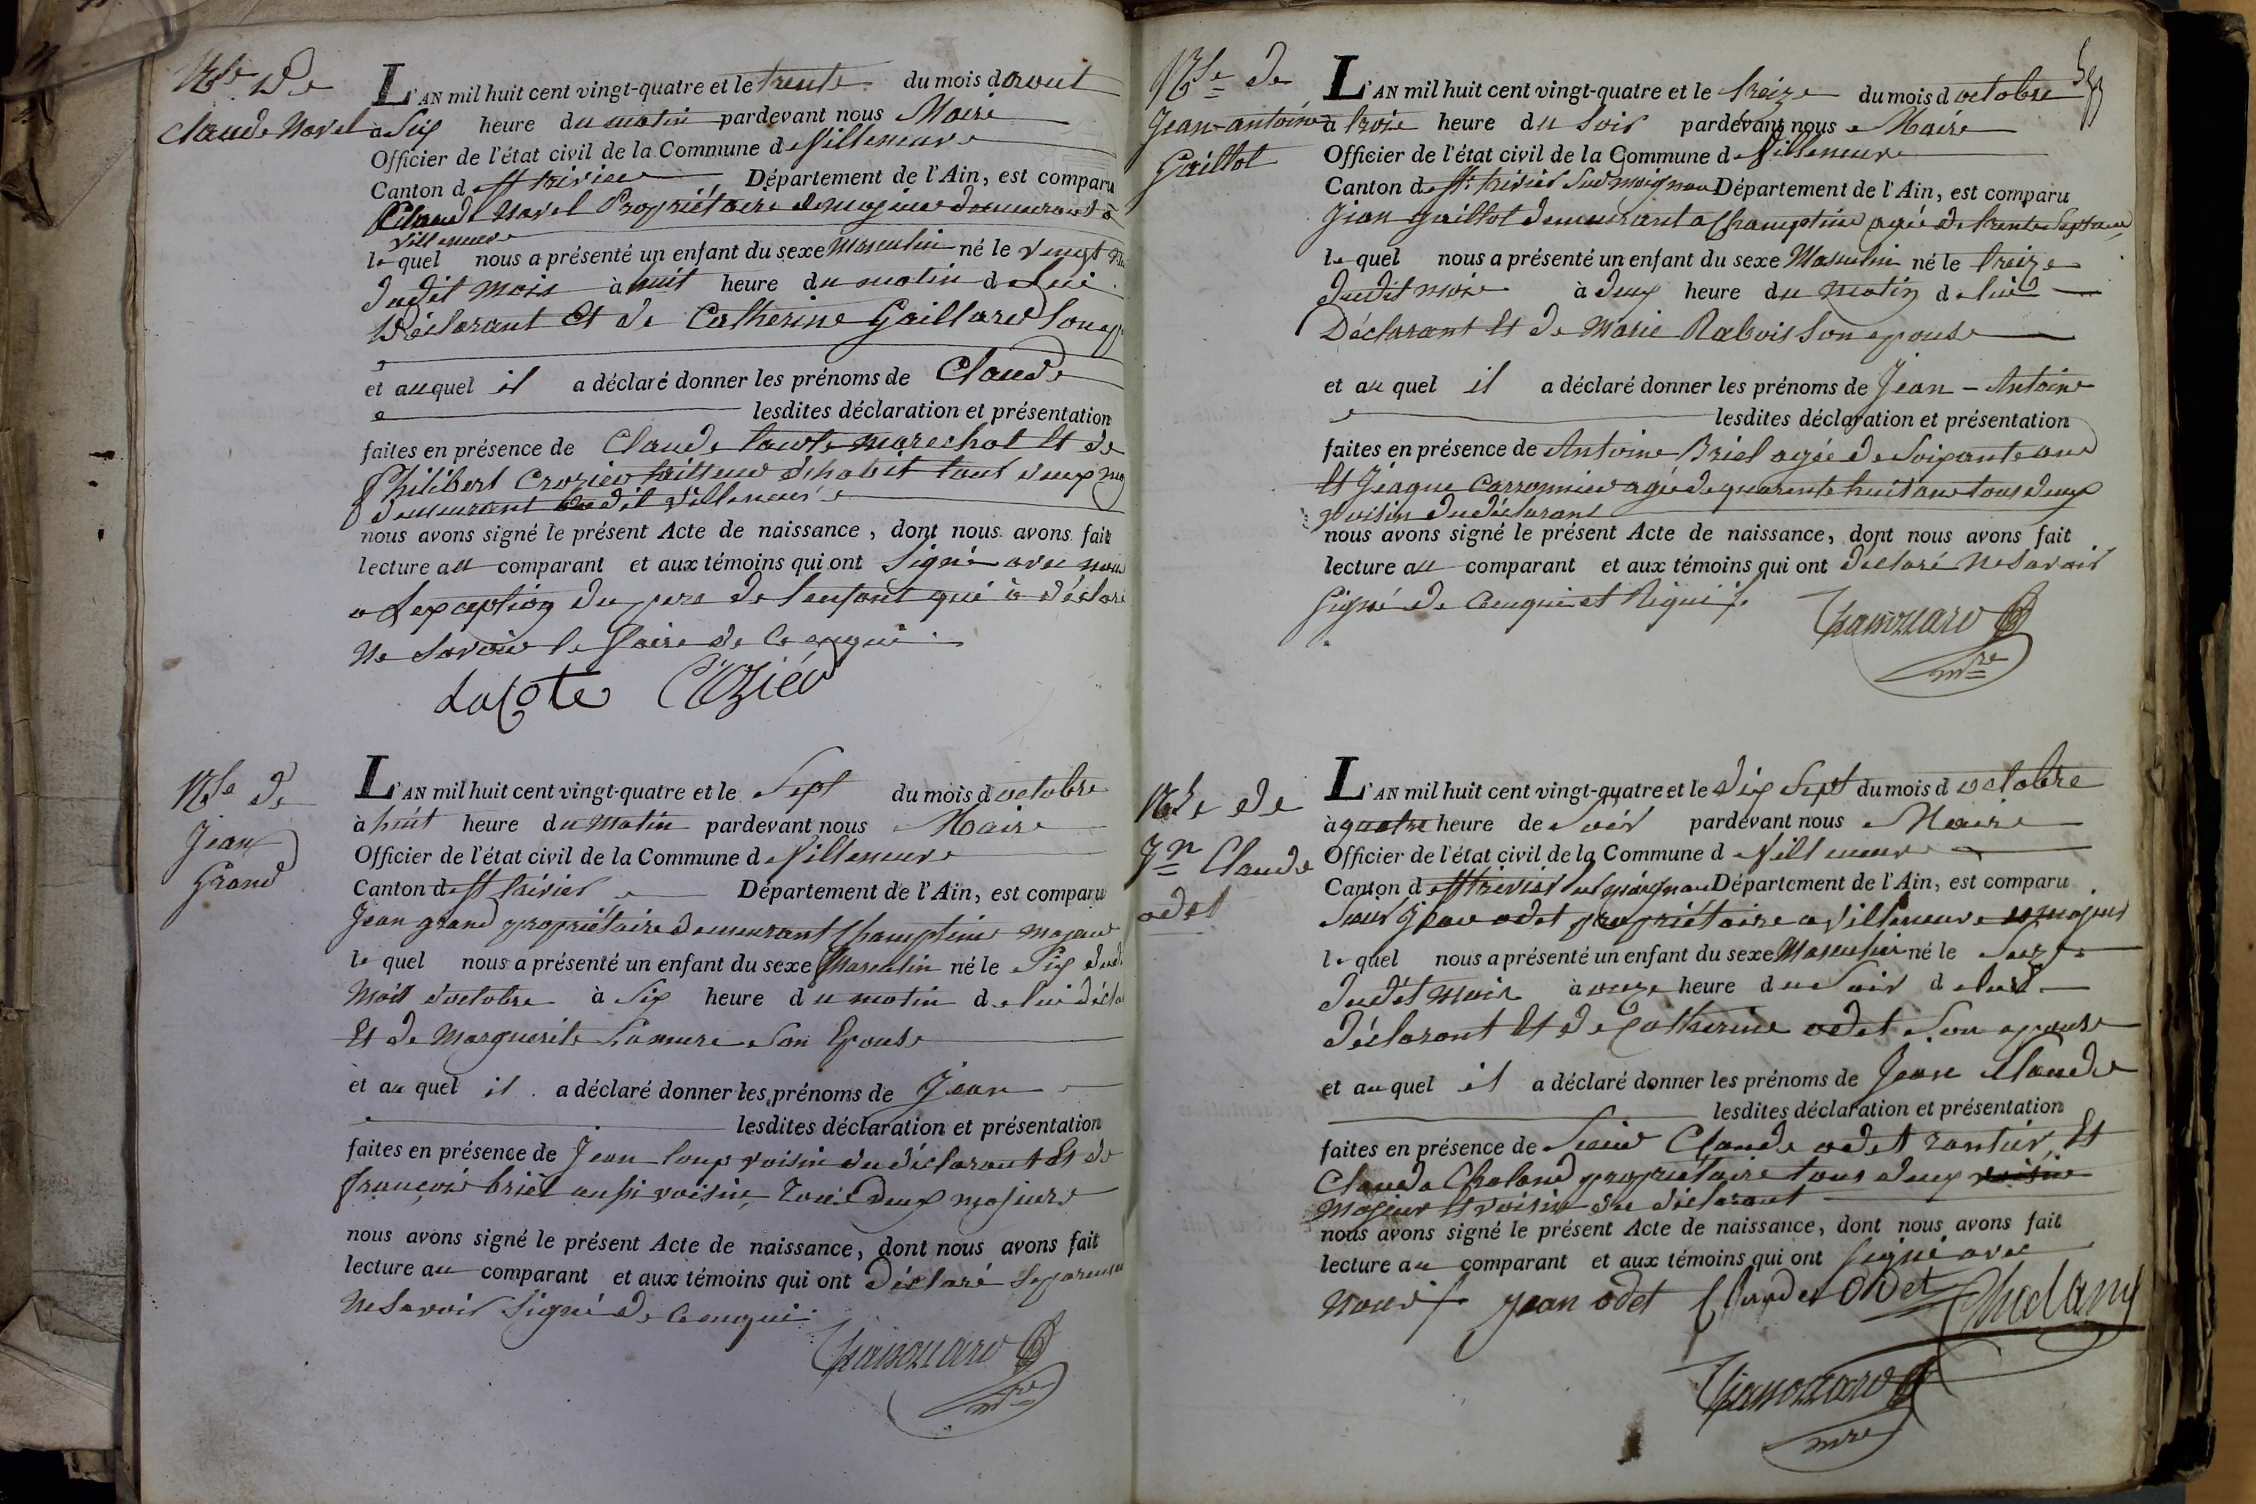 Nce De
Claude Navel
L'AN mil huit cent vingt-quatre et le trente du mois d aout
à Six heure du matin pardevant nous Maire
Officier de l'état civil de la Commune de Villeneuve
Canton de St trivier Département de l'Ain, est comparu
Claude Navel Propriétaire demeurant à
Villeneuve
lequel nous a présenté un enfant du sexe Masculin né le vingt
dudit mois à huit heure du matin de lui
Déclarant Et de Catherine Gaillard Son
et auquel il a déclaré donner les prénoms de Claude
lesdites déclaration et présentation
faites en présence de Claude marechal Et de
Philibert Crozier d'habit tout deux
demeurant audit Villeneuve
nous avons signé le présent Acte de naissance, dont nous avons fait
lecture au comparant et aux témoins qui ont Signé avec nous
a Lexception du pere de lenfant qui à déclaré
Ne Savoir le faire de Ce enquit
LaCote Crozier
Nce de
Jean
Grand
L'AN mil huit cent vingt-quatre et le Sept du mois d octobre
à huit heure du Matin pardevant nous Maire
Officier de l'état civil de la Commune de Villeneuve
Canton de St trivier Département de l'Ain, est comparu
Jean grand propriétaire demeurant Champtein majeur
lequel nous a présenté un enfant du sexe Masculin né le Six dudit
Mois d'octobre à Six heure du matin de lui
Et de Marguerite Lamure Son Epouse
et auquel il a déclaré donner les prénoms de Jean
lesdites déclaration et présentation
faites en présence de Jean loup voisin du déclarant Et de
françois briel aussi voisin, deux majeurs
nous avons signé le présent Acte de naissance, dont nous avons fait
lecture au comparant et aux témoins qui ont Déclaré Séparement
Ne Savoir Signé De Ce enquit
Nce de
Jean-antoine
Gaillot
L'AN mil huit cent vingt-quatre et le treize du mois d octobre
à trois heure du Soir pardevant nous Maire
Officier de l'état civil de la Commune de Villeneuve
Canton de St trivier Sur moignans Département de l'Ain, est comparu
Jean gaillot demeurant a Champtein agée de trente Sept ans
lequel nous a présenté un enfant du sexe Masculin né le treize
dudit mois à deux heure du matin de lui
Déclarant Et de Marie Rabois Son epouse
et auquel il a déclaré donner les prénoms de Jean - Antoine
lesdites déclaration et présentation
faites en présence de Antoine Briel agée de Soixante ans
Et Jeaque agée de quarente huit ans tous deux
voisin du déclarant
nous avons signé le présent Acte de naissance, dont nous avons fait
lecture au comparant et aux témoins qui ont déclaré Ne Savoir
Signé de Cenquit et Riquit
mre
Nce de
Jn Claude
odet
L'AN mil huit cent vingt-quatre et le dix Sept du mois d octobre
à quatre heure de Soir pardevant nous Maire
Officier de l'état civil de la Commune de Villeneuve
Canton de St trivier sur moignans Département de l'Ain, est comparu
Sieur Jean odet propriétaire a Villeneuve majeur
lequel nous a présenté un enfant du sexe Masculin né le Seize
dudit mois à onze heure du Soir de lui
déclarant Et de Catherine odet Son epouse
et auquel il a déclaré donner les prénoms de Jean Claude
lesdites déclaration et présentation
faites en présence de Sieur Claude odet rantier, Et
Claude Chaland propriétaire tous deux
Majeur Et voisin du déclarant
nous avons signé le présent Acte de naissance, dont nous avons fait
lecture au comparant et aux témoins qui ont Signé avec
Nous Jean odet Claude Odet
mre